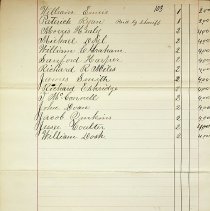 William Ennis 103 1 200
Patrick Ryan Paid by Sheriff 2 400
Morris Healy 2 400
Michael 2 400
William Graham 2 400
Sanford Harper 2 400
Richard R Miles 2 400
James Smith 2 400
Richard Ethridge 2 400
J McConnell 2 400
John Doran 2 400
Jacob Jenkins 2 400
Jesse Coulter 2 400
William Dosh 2 400